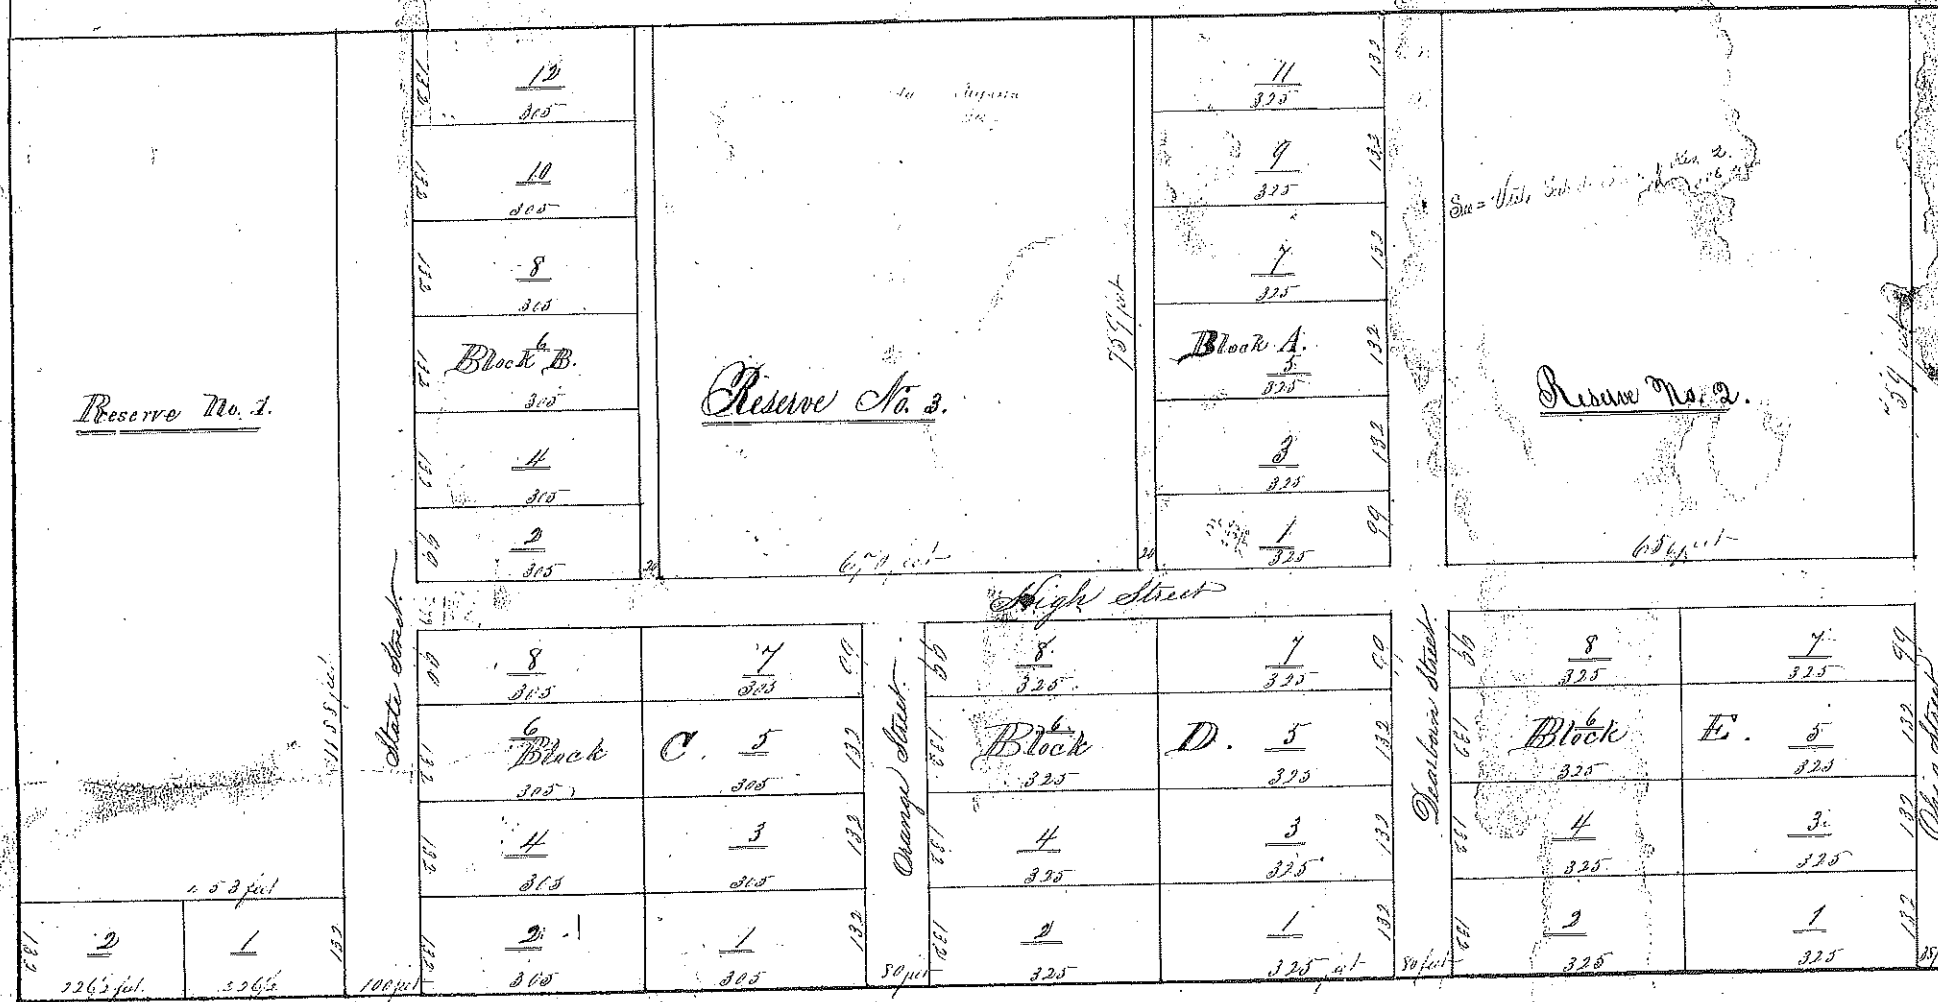 Reserve No. 1.
1155 feet
453 feet
132
2
226½ feet
1
226½
132
State Street.
100 feet
132
12
305
132
10
305
132
8
305
132
6
Block B.
305
132
4
305
99
2
305
20
Reserve No. 3.
759 feet
670 feet
20
11
325
132
9
325
132
7
325
132
Block A.
5
325
132
3
325
132
1
325
99
See
Reserve No. 2.
759 feet
656 feet
High Street
99
8
305
7
305
99
132
6
Block C.
305
5
305
132
132
4
305
3
305
132
132
2
305
1
305
132
Orange Street.
80 feet
99
8
325
7
325
99
132
6
Block D.
325
5
325
132
132
4
325
3
325
132
132
2
325
1
325 feet
132
Dearborn Street.
80 feet
99
8
325
7
325
99
132
6
Block E.
325
5
325
132
132
4
325
3
325
132
132
2
325
1
325
132
Ohio Street